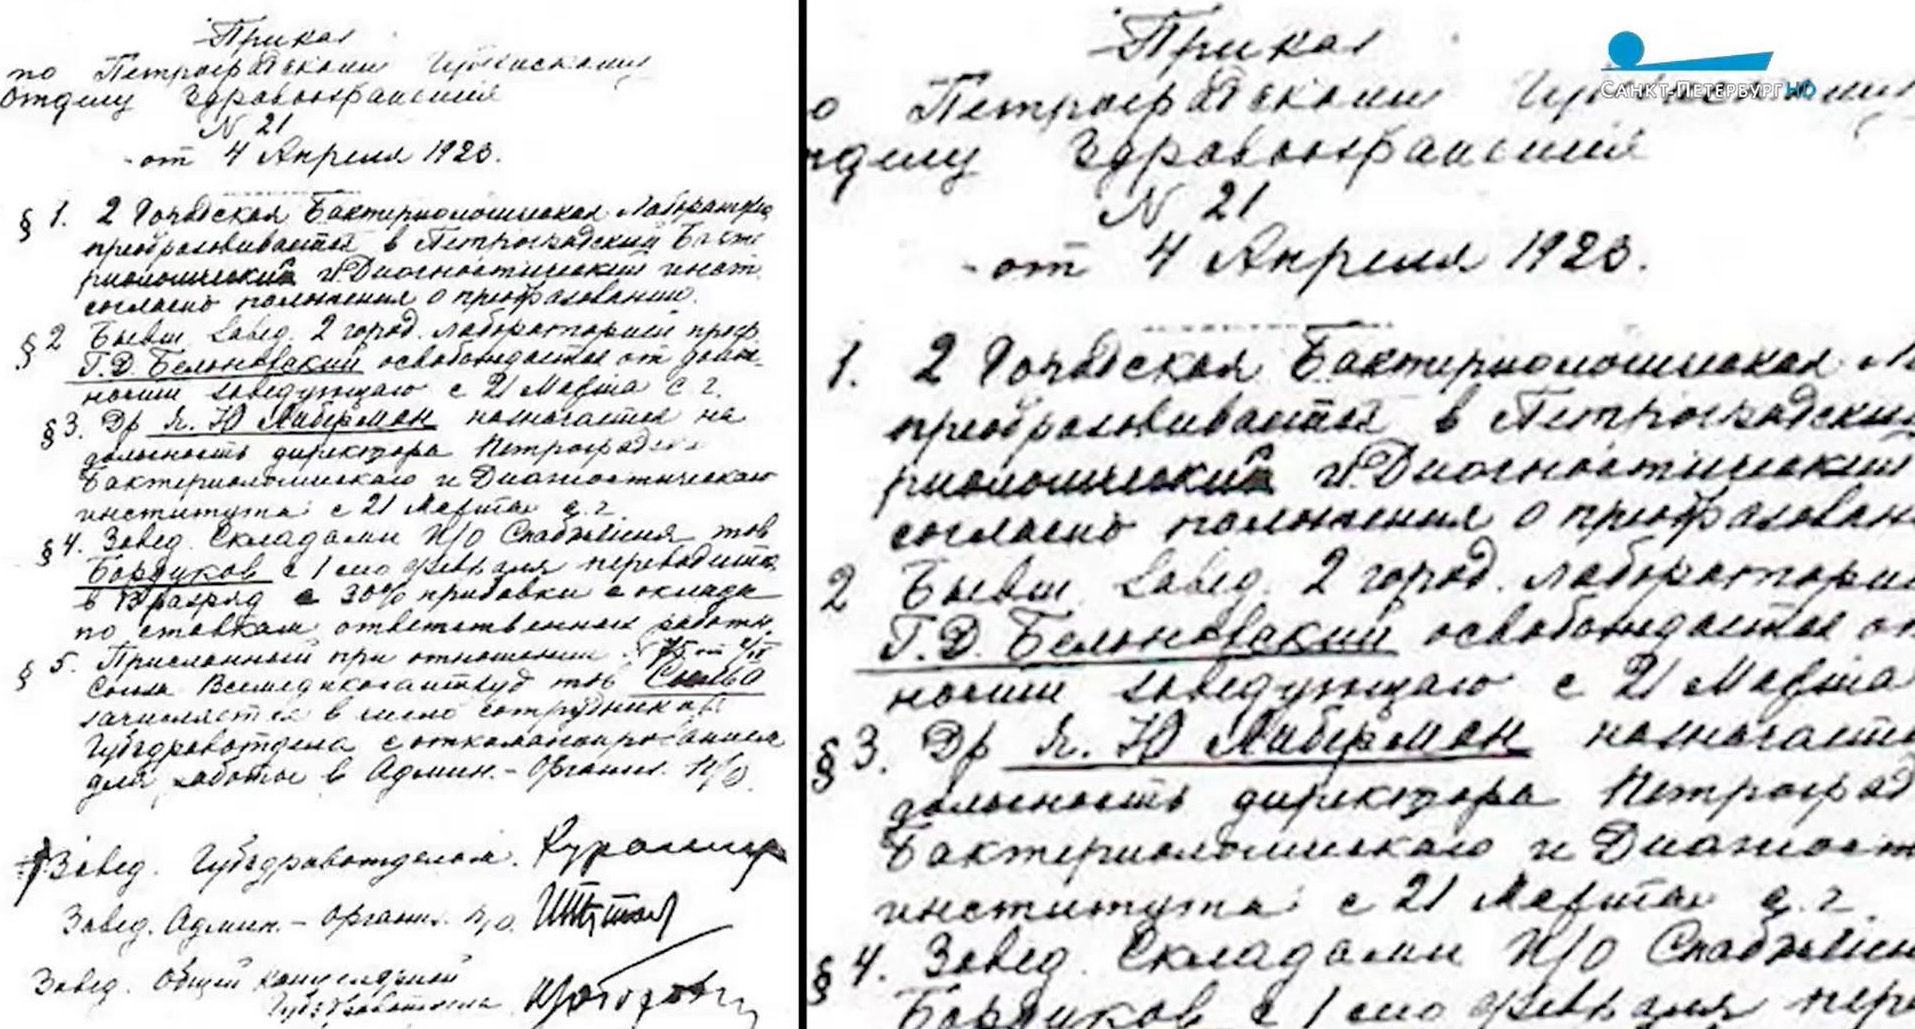 Приказ
по Петроградскому Губернскому
Отделу Здравоохранения
N 21
- от 4 Апреля 1923.
§ 1. 2 Городская Бактериологическая Лаборатория
преобразовывается в Петроградский Бакте
риологический и Диагностический инст.
согласно положения о преобразовании.
§ 2 Бывш. Завед. 2 город. лабораторией проф.
Г.Д. Белоновский освобождается от долж-
ности заведующего с 21 Марта с. г.
§ 3. Др Я. Ю Либерман назначается на
должность директора Петроградск
Бактериологического и Диагностического
института с 21 Марта с. г.
§ 4. Завед. Складами П/О Снабжения тов
Бордуков с 1 сего февраля переводится
в 13 разряд с 30% прибавки с оклада
по ставкам ответственных работн.
§ 5. Присланный при отношении
Союза Всемедикосантруд тов
зачисляется в число сотрудников
Губздравотдела с откомандированием
для работы в Админ.- Организ. П/О.
Завед. Губздравотделом.
Завед. Админ. - Организ. П/О.
Завед. Общей канцелярией
Губздравотдела
Приказ
о Петроградскому
тделу Здравоохранения
N 21
- от 4 Апреля 1923.
1. 2 Городская Бактериологическая Л
преобразовывается в Петроградский
риологический и Диагностический
согласно положения о преобразован
2 Бывш. Завед. 2 город. лабораторие
Г.Д. Белоновский освобождается от
ности заведующего с 21 Марта
§ 3. Др Я. Ю Либерман назначается
должность директора Петроград
Бактериологического и Диагност
института с 21 Марта с. г.
§ 4. Завед. Складами П/О Снабжени
Бордуков с 1 сего февраля пере
САНКТ-ПЕТЕРБУРГ HD